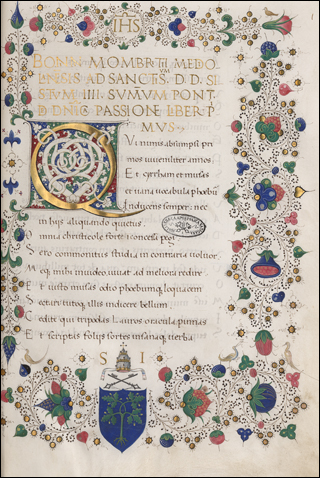 IHS
BONINI MOMBRITII MEDIO
AD SANCTISS. D. D. SI
STVM IIII SVMMVM PONT
D. DNIC PASSION LIBER P
MVS
Q Vi nimis absumpsi pri
mos iuueniliter annos
Et cyrrham et musas
et uana uocabula phoebum
Inducens semper: nec
in his aliquando quietus
O mnia christicole forte concessa
S ero commonitus studia in contraria uoluor
M eq; mihi inuideo ad meliora redire
E t iusto musas odio phoebumq; loquacem
illis indicere bellum
qui tripodas Lauros oracula
E t scriptas foliis sortes insanaq; uerba
S I